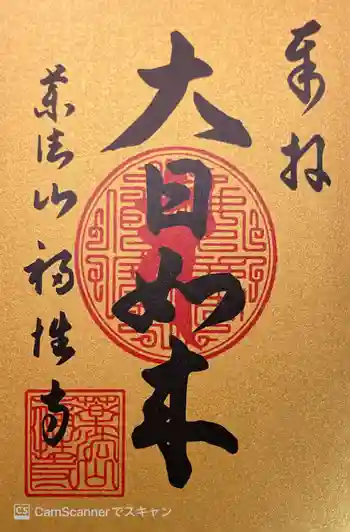 奉拝
大日如来
薬法山福性寺
CS CamScannerでスキャン